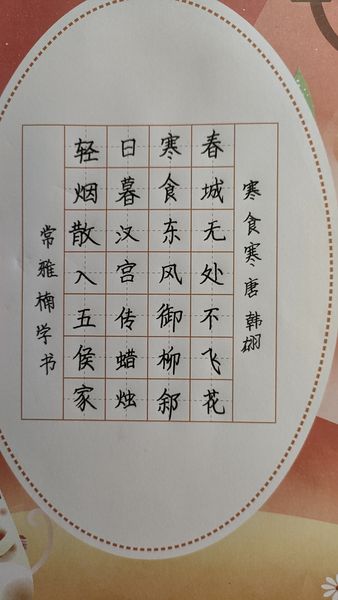 寒食寒唐 韩翃
春城无处不飞花
寒食东风御柳斜
日暮汉宫传蜡烛
轻烟散入五侯家
常雅楠学书